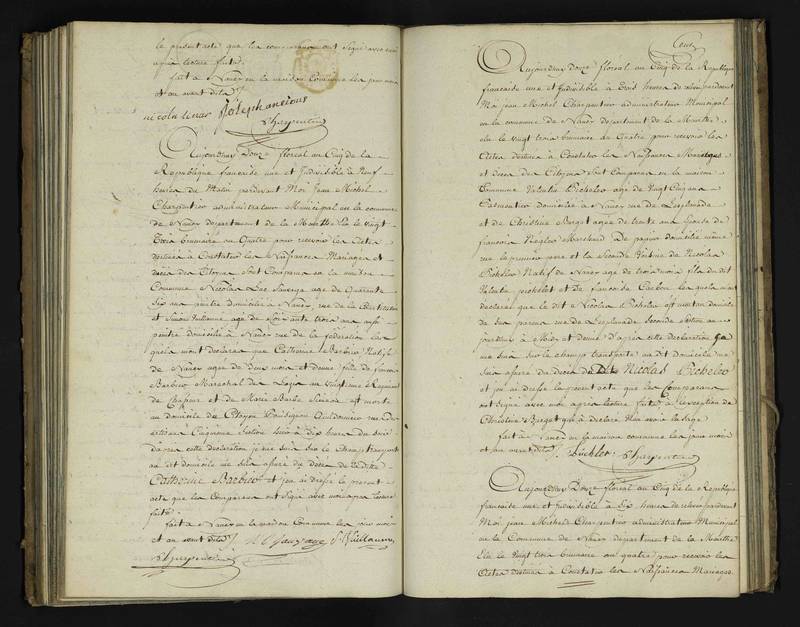 le present acte que les comparans ont signé avec moi
après lecture faite.
fait à Nancy en la maison Commune les jour mois
et an avant dits
nicolas
Charpentier
Aujourdhuy Douze floreal an Cinq de la
Republique française une et Indivisible à Neuf
heures du Matin pardevant Moi Jean Michel
Charpentier administrateur Municipal en la commune
de Nancy departement de la Meurthe Elu le vingt
Trois brumaire an Quatre pour recevoir les Actes
destinés à Constater les Naissances Mariages et
décès des Citoyens Sont Comparus en la maison
Commune Nicolas Luc Sauvage age de Quarante
Six ans peintre domicilié à Nancy rue de la Constitution
et Simon age de Soixante trois ans aussi
peintre domicilié à Nancy rue de la fédération les
quels mont déclaré que Catherine Barbier Native
de Nancy age de deux mois et demie fille de
Barbier Marechal des Logis au Vingtieme Regiment
de Chasseur et de Marie Barbe est morte
au domicile du Citoyen rue
Cinquieme Section hier à dix heures du Soir
dapres cette déclaration je me suis sur le Champ transporté
au dit domicile me suis assuré du Décès de Laditte
Catherine Barbier et jen ai dressé le present
acte que les Comparans ont Signé avec moi après lecture
faite
fait à Nancy en la maison Commune les jour mois
et an avant dits
Charpentier
Aujourdhuy Douze floreal an Cinq de la Republique
française une et Indivisible à Trois heures de relevée pardevant
Moi Jean Michel Charpentier administrateur Municipal
en la commune de Nancy departement de la Meurthe
elu le vingt trois brumaire an Quatre pour recevoir les
Actes destinés à Constater les Naissances Mariages
et décès des Citoyens Sont Comparus en la maison
Commune Valentin age de Vingt Cinq ans
domicilié à Nancy rue de L'esplanade
et de Christine Berget agée de trente ans Epouse de
françois Marchand De papier domicilié même
rue le premier pere et la Seconde Voisine de Nicolas
Natif de Nancy age de trois mois fils du dit
Valentin et de francoise les quels mont
déclaré que le dit Nicolas est mort au domicile
de Ses parens rue de L'esplanade Seconde Section au
jourdhuy à Midy et demie d'apres cette déclaration je
me suis sur le champ transporté au dit domicile me
suis assuré du Décès du Dit Nicolas
et jen ai dressé le present acte que les Comparans
ont Signé avec moi apres lecture faite à l'exception de
Christine Berget qui à declaré Nen avoir l'usage
fait à Nancy en la maison commune les jour mois
et an avant dits
Charpentier
Aujourdhuy Douze floreal an Cinq de la Republique
française une et Indivisible à Six heures de relevée pardevant
Moi Jean Michel Charpentier administrateur Municipal
en la Commune de Nancy departement de la Meurthe
Elu le Vingt trois brumaire an quatre pour recevoir les
Actes destinés à Constater les Naissances Mariages